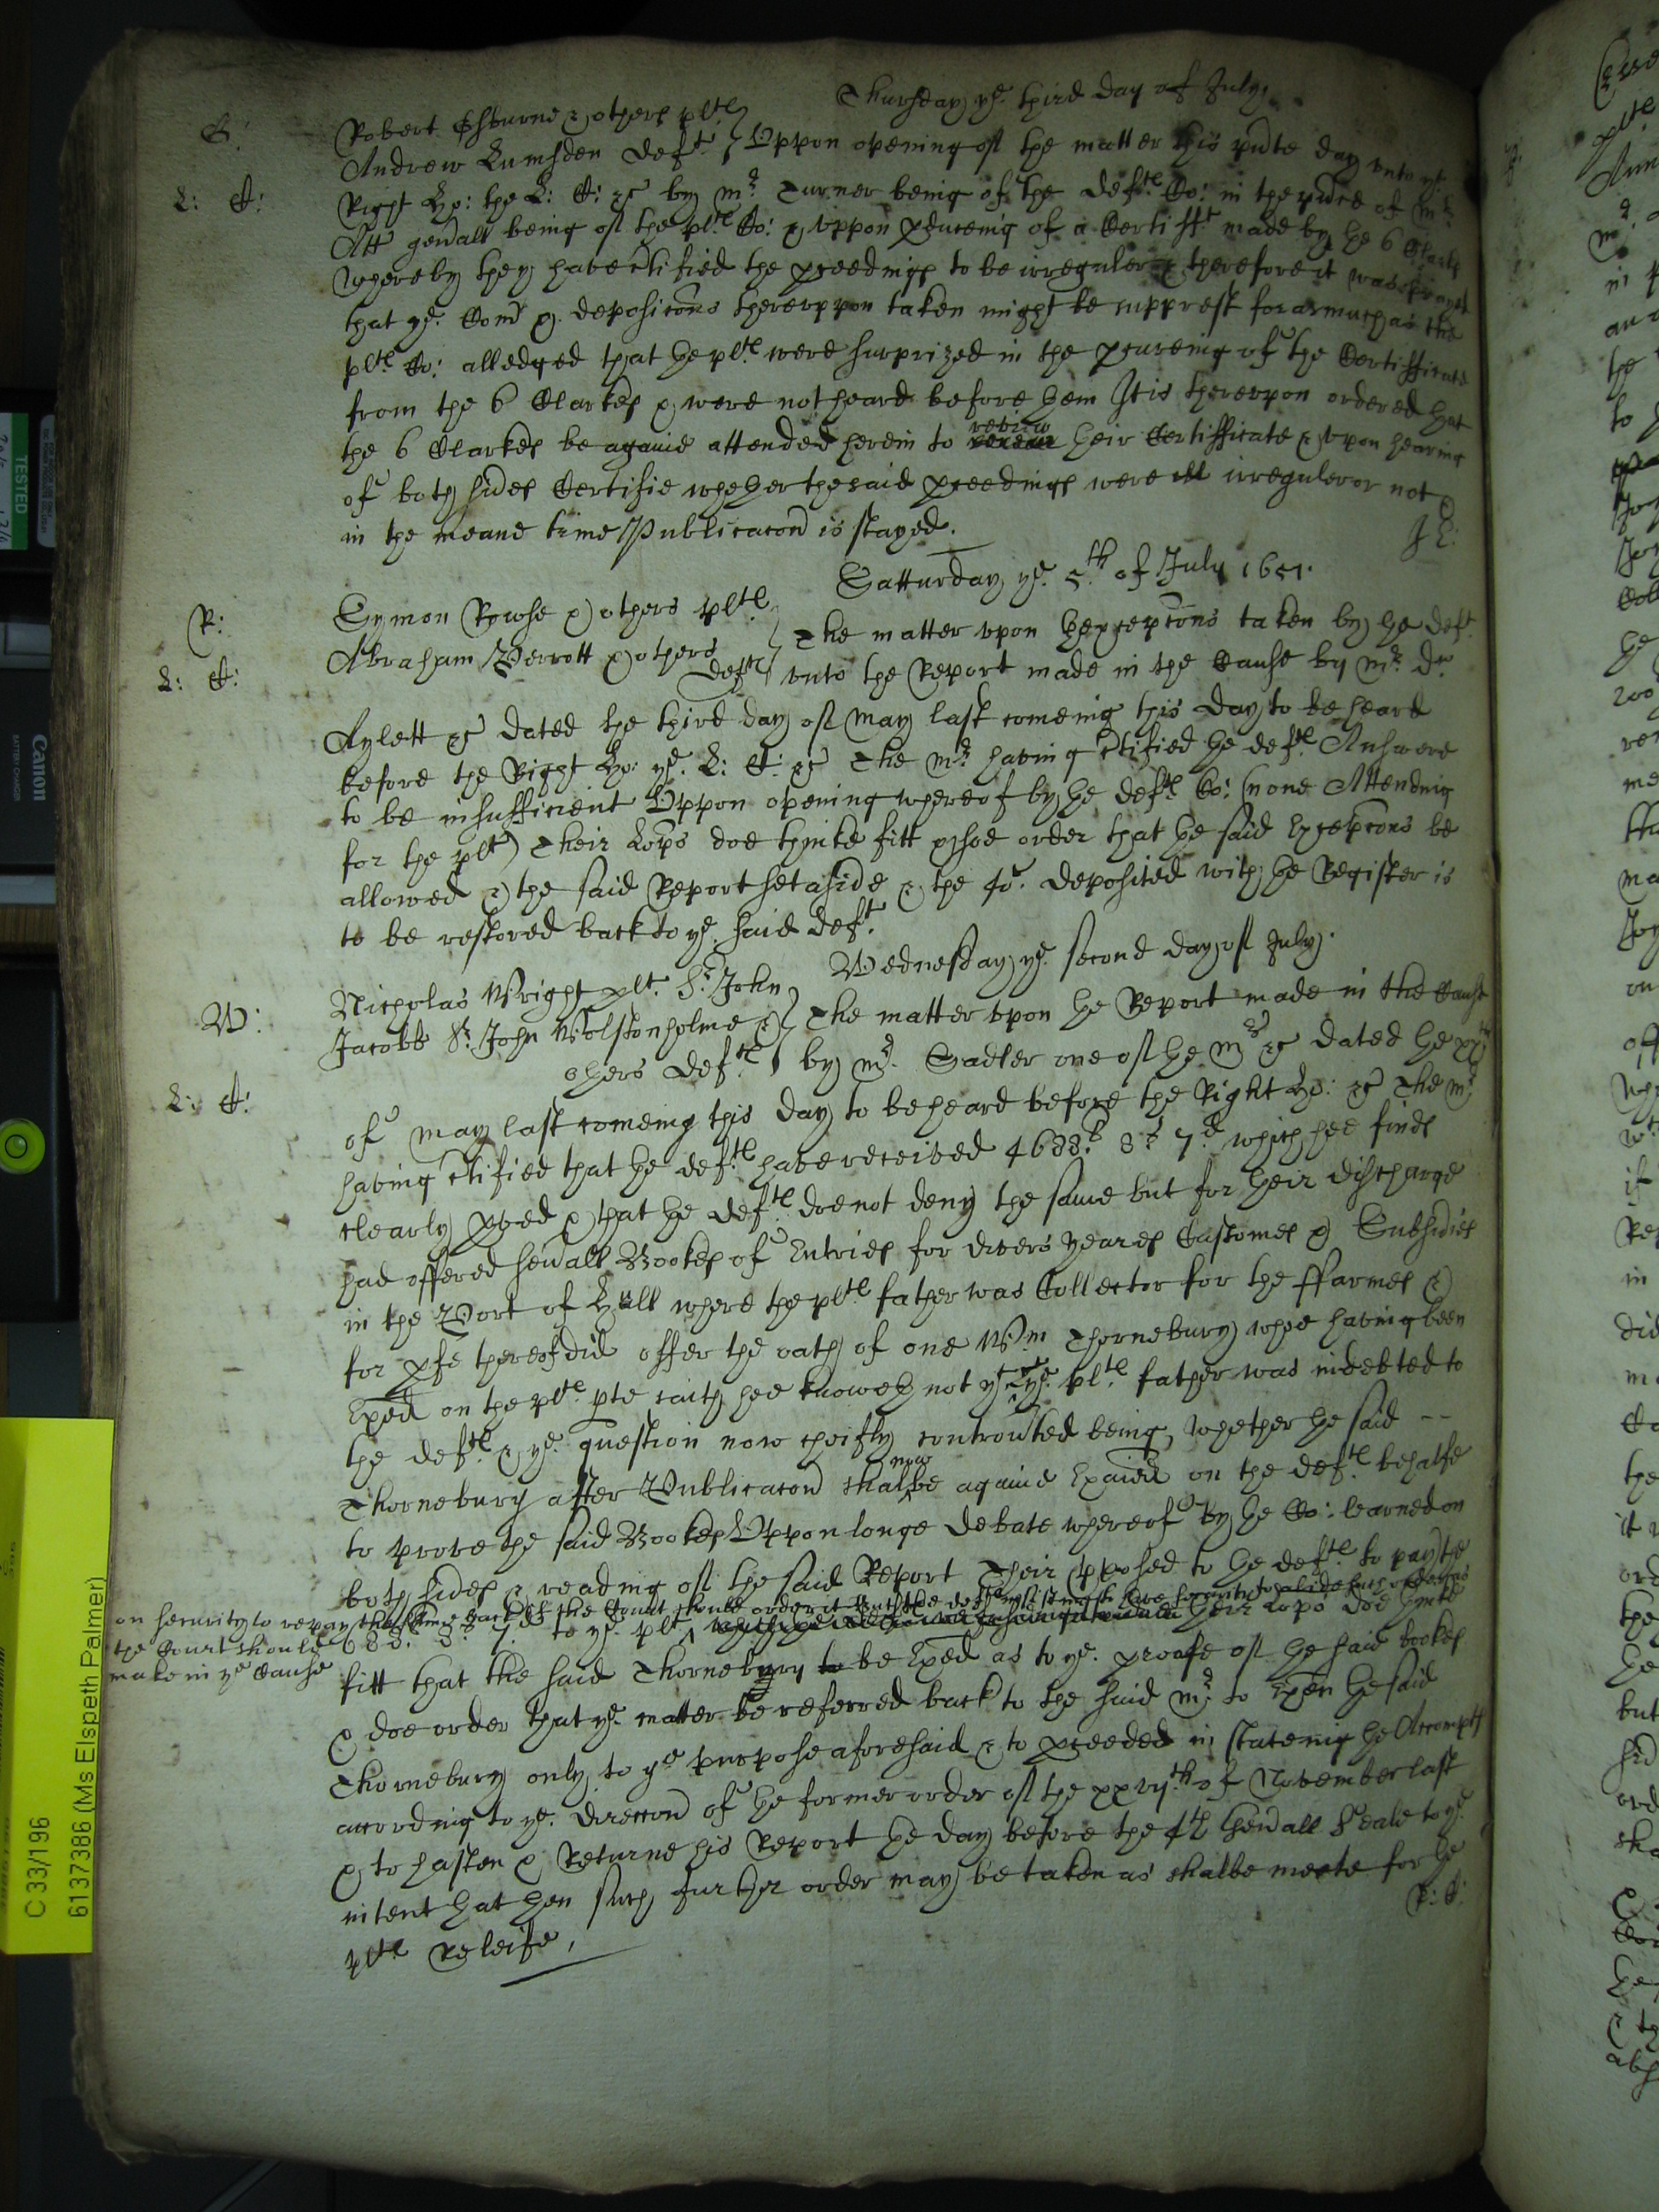 Thursday ye. third day of July.
O:
Robert Osburne & others plts
Andrew Lumsden deft. Uppon opening of the matter this pnte day unto ye.
L: C:
Right Ho: the L: C: &c by mr. Turner being of the defts Co: in the pnce of mr.
Att genall being of the plts Co: & uppon pduceing of a Certifft made by the 6 Clarks
Whereby they have ctified the pceedings to be irreguler & therefore it was prayed
that ye. Comn & deposicons thereuppon taken might be supprest forasmuch as the
plts Co: alledged that the plts were surprized in the pcureing of the Certifficate
from the 6 Clarkes & were not heard before them It is thereupon ordered that
the 6 Clarkes be againe attended herein to review their Certifficate & upon hearing
of both sides Certifie whether the said pceedings were irreguler or not &
in the meane time Publicacon is stayed.
J E:
Satturday ye. 5th of July 1651.
R:
Symon Rowse & others plts
Abraham Perrott & others
defts
The matter upon th excepcons taken by the deft.
L: C:
unto the Report made in the Cause by mr. Dr.
Aylett &c dated the third day of May last comeing this day to be heard
before the Right Ho: ye. L: C: &c The mr. having ctified the defts Answere
to be insufficient Uppon opening whereof by the defts Co: (none Attending
for the plt) Their Lops doe thinke fitt & soe order that the said Excepcons be
allowed & the said Report set aside & the 40s. deposited with the Register is
to be restored back to ye. said deft.
Wednesday ye. second day of July.
W:
Nicholas Wright plt. Sr. John
Jacobb Sr. John Wolstonholme &
others defts
The matter upon the Report made in the Cause
by mr. Sadler one of the mrs &c dated the
L: C:
of May last comeing this day to be heard before the Right Ho: &c The mr.
having ctified that the defts have received 4688l. 8s 7d which hee finds
clearly pved & that the defts doe not deny the same but for their discharge
had offered sevall Bookes of Entries for divers yeares Customes & Subsidies
in the Port of Hull where the plts father was Collector for the ffarmes &
for pfe thereof did offer the oath of one Wm Thornebury whoe having been
Exed on the plts pte saith hee knoweth not yt ye. plts father was indebted to
the defts & ye. question now cheifly controvted being, whether the said --
Thornebury after Publicacon shall now be againe Exaied on the defts behalfe
to prove the said Bookes Uppon longe debate whereof by the Co: learned on
both sides & reading of the said Report Their pposed to the defts to pay the
688. 8. 7. to ye. plt their Lops doe thinke
on security to repay the same back if the Court should order it
the Court should
make in ye Cause
fitt that the said Thornebury be Exed as to ye. proofe of the said bookes
& doe order that ye. matter be referred back to the said mr. to Exen the said
Thornebury only to ye purpose aforesaid & to pceeded in stateing the Accompts
according to ye. direccon of the former order of the xxvijth of November last
& to hasten & Returne his Report the day before the 4th genall Seale to ye.
intent that then such further order may be taken as shalbe meete for the
plts Releife,
R: C:
C 33/196
6137386 (Ms Elspeth Palmer)
TESTED
Canon
BATTERY CHARGER